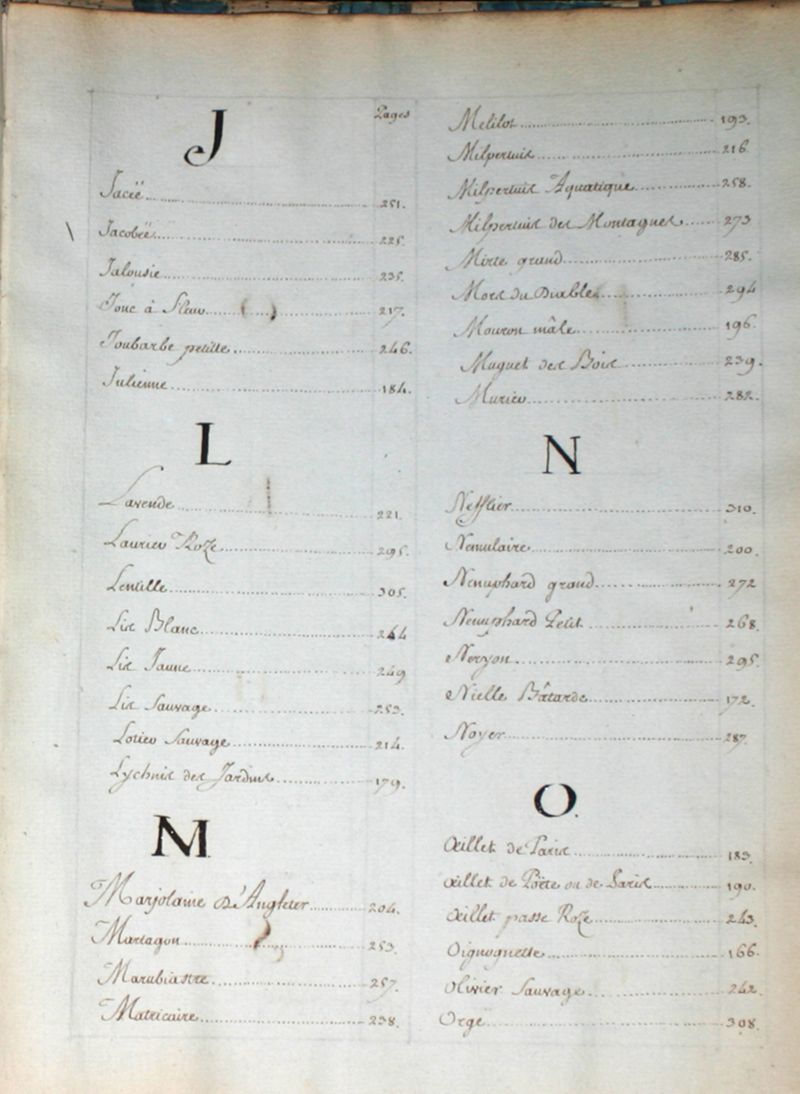 J
Pages
Jaceë 251.
Jacobëe 225.
Jalousie 235.
Jonc à Fleur 217.
Joubarbe petitte 246.
Julienne 184.
L
Lavende 221.
Laurier Roze 295.
Lentille 305.
Lis Blanc 244
Lis Jaune 249
Lis Sauvage 253.
Lotier Sauvage 214.
Lychnis des Jardins 179.
M
Marjolaine D'Angleter 204.
Martagon 253.
Marubiastre 257.
Matricaire 238.
Melilot 193.
Milpertuis 216
Milpertuis Aquatique 258.
Milpertuis des Montagnes 273
Mirte grand 285.
Mors du Diable 294
Mouron mâle 196.
Muguet des Bois 239.
Murier 282.
N
Nefflier 310.
Nemulaire 200.
Nenuphard grand 272
Nenuphard Petit 268.
Neryon 295.
Nielle Bâtarde 172.
Noyer 287.
O
Œillet de Paris 183.
Œillet de Poëte ou de Paris 190.
Œillet passe Roze 243.
Oignognette 166.
Olivier Sauvage 242.
Orge 308.